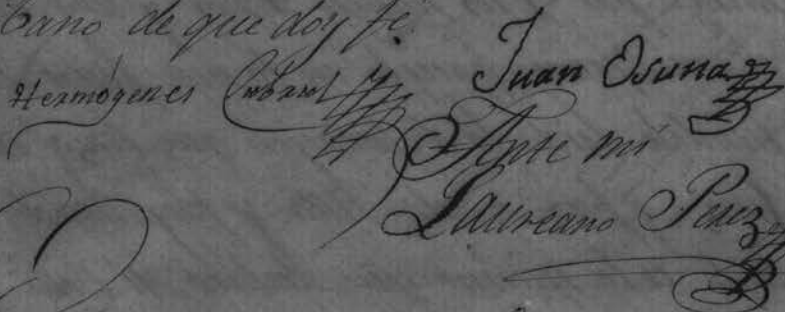 bano de que doy fé.
Hermógenes Cabral Juan Osuna
Ante mí
Laureano Perez